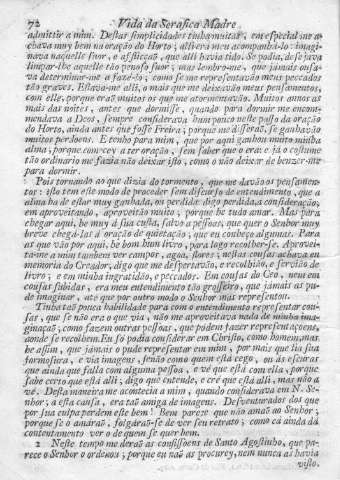 72 Vida da Serafica Madre
admittir a mim. Destas simplicidades tinha muitas, em especial me a-
chava muy bem na oração do Horto; alli era meu acompanhá-lo: imagi-
nava naquelle suor, e afflicçaõ, que alli havia tido. Se podia, desejava
limpar-lhe aquelle tão penoso suor; mas lembro-me, que jámais ousa-
va determinar-me a fazê-lo; como se me representavão meus peccados
tão graves. Estava-me alli, o mais que me deixavão meus pensamentos,
com elle, porque eraõ muitos os que me atormentavão. Muitos annos as
mais das noites, antes que dormisse, quando para dormir me encom-
mendava a Deos, sempre considerava hum pouco neste passo da oração
do Horto, ainda antes que fosse Freira; porque me disseraõ, se ganhavão
muitos perdoens. E tenho para mim, que por aqui ganhou muito minha
alma; porque comecey a ter oração, sem saber que o era: e já o costume
tão ordinario me fazia não deixar isto, como o não deixar de benzer-me
para dormir.
Pois tornando ao que dizia do tormento, que me davão os pensamen-
tos: isto tem este modo de proceder sem discurso de entendimento, que a
alma ha de estar muy ganhada, ou perdida: digo perdida, a consideração;
em aproveitando, aproveitão muito; porque he tudo amar. Mas para
chegar aqui, he muy á sua custa, salvo a pessoas, que quer o Senhor muy
breve chegá-las á oração de quietação; que eu conheço algumas. Para
as que vão por aqui, he bom hum livro, para logo recolher-se. Aprovei-
ta-me a mim tambem ver campos, agoa, flores; nestas cousas achava eu
memoria do Creador, digo que me despertavão, e recolhião, e servião de
livro; e em minha ingratidão, e peccados. Em cousas do Ceo, nem em
cousas subidas, era meu entendimento tão grosseiro, que jámais as pu-
de imaginar, até que por outro modo o Senhor mas representou.
Tinha taõ pouca habilidade para com o entendimento representar cou-
sas, que se não era o que via, não me aproveitava nada de minha ima-
ginação; como fazem outras pessoas, que podem fazer representaçoens,
aonde se recolhem. Eu só podia considerar em Christo, como homem; mas
he assim, que jámais o pude representar em mim, por mais que lia sua
formosura, e via imagens, senão como quem está cego, ou ás escuras
que ainda que falla com alguma pessoa, e vê que está com ella, porque
sabe certo que está alli; digo que entende, e crê que está alli, mas não a
vê. Desta maneira me acontecia a mim, quando considerava em N. Se-
nhor; a esta causa, era taõ amiga de imagens. Desventurados dos que
por sua culpa perdem este bem! Bem parece que não amaõ ao Senhor;
porque se o amáraõ, folgáraõ-se de ver seu retrato; como cá ainda dá
contentamento ver o de quem se quer bem.
2 Neste tempo me deraõ as confissoens de Santo Agostinho, que pa-
rece o Senhor o ordenou; porque eu naõ as procurey, nem nunca as havia
visto.